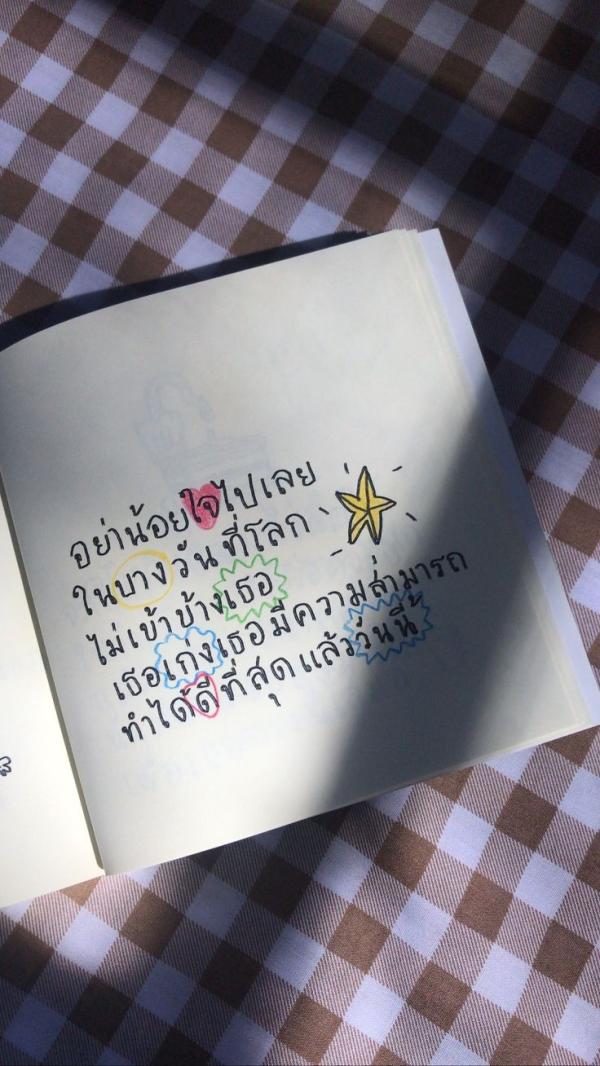 อย่าน้อยใจไปเลย
ในบางวันที่โลก
ไม่เข้าข้างเธอ
เธอเก่งเธอมีความสามารถ
ทำได้ดีที่สุดแล้ววันนี้